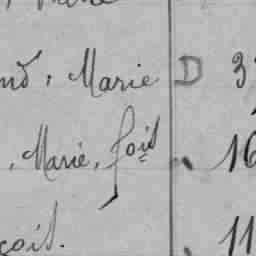 nd, Marie D 3
, Marie, fois 16
çois. 11